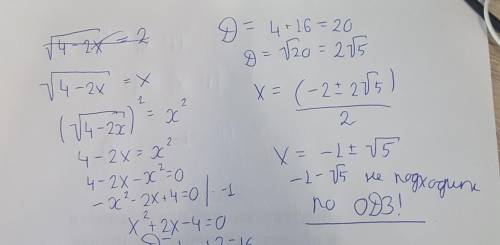 √4-2x = 2
√4-2x = x
(√4-2x)² = x²
4-2x = x²
4-2x-x²=0
-x²-2x+4=0 | · -1
x²+2x-4=0
D = 4+16=20
D = √20 = 2√5
x = (-2 ± 2√5) / 2
x = -1 ± √5
-1-√5 не подходит
по ОДЗ!